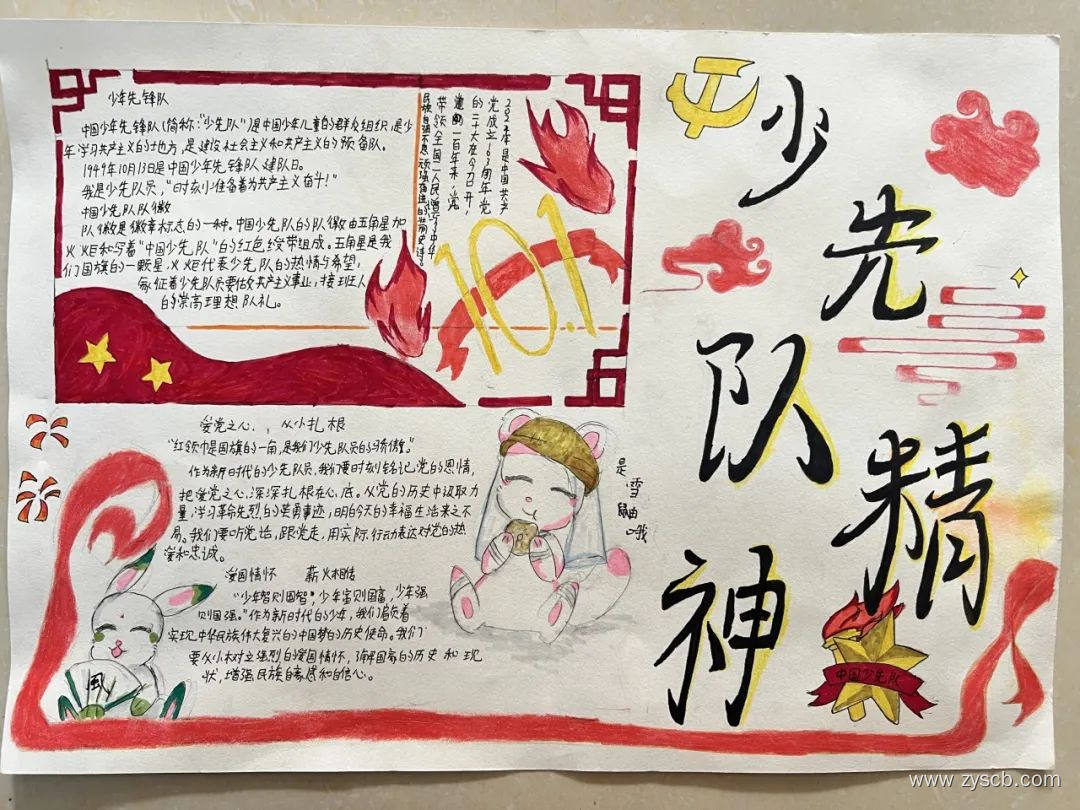 少先队精神
少年先锋队
中国少年先锋队(简称:“少先队”)是中国少年儿童的群众组织,是少
年学习共产主义的地方,是建设社会主义和共产主义的预备队。
1949年10月13日是中国少年先锋队建队日。
我是少先队员,“时刻准备着为共产主义奋斗!”
中国少先队队徽
队徽是徽章标志的一种。中国少先队的队徽由五角星加
火炬和写着“中国少先队”的红色绶带组成。五角星是我
们国旗的一颗星,火炬代表少先队的热情与希望,
象征着少先队员要做好共产主义事业,接班人
的崇高理想队礼。
年是中国共产
党成立 周年党
的二十大在今召开,
一百年来,党
带领全国人民
民族自强不息顽强
10.1
爱党之心.,从小扎根
“红领巾是国旗的一角,是我们少先队员的骄傲”。
作为新时代的少先队员,我们要时刻铭记党的恩情,
把爱党之心深深扎根在心底。从党的历史中汲取力
量,学习革命先烈的英勇事迹,明白今天的幸福生活来之不
易。我们要听党话,跟党走,用实际行动表达对党的热
爱和忠诚。
爱国情怀 薪火相传
“少年智则国智”,少年富则国富,少年强
则国强。”作为新时代的少年,我们肩负着
实现中华民族伟大复兴的中国梦的历史使命。我们
要从小树立强烈的爱国情怀,了解国家的历史和现
状,增强民族自豪感和自信心。
是雪融哦
中国少先队
www.zyscb.com